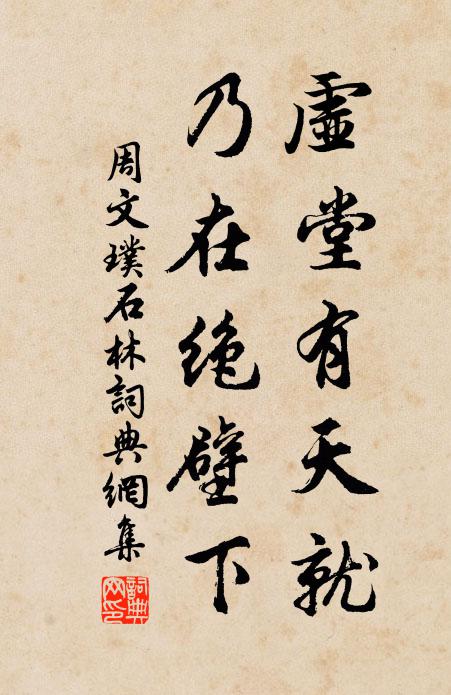 虛堂有天就
乃在绝壁下
周文璞石林詞典網集
詞典网印